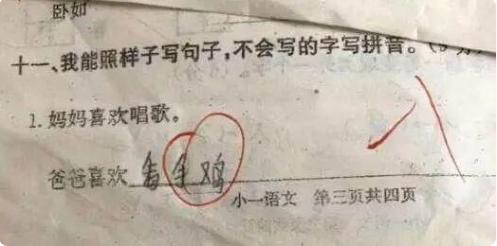 卧如
十一、我能照样子写句子,不会写的字写拼音。
1. 妈妈喜欢唱歌。
爸爸喜欢 看手鸡
小一语文 第三页共四页